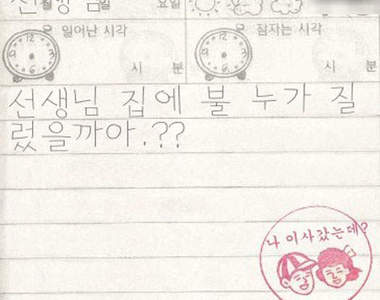 선생님
월 일 요일
일어난 시각 잠자는 시각
시 분 시 분
선생님 집에 불 누가 질
렀을까아.??
나 이사갔는데?